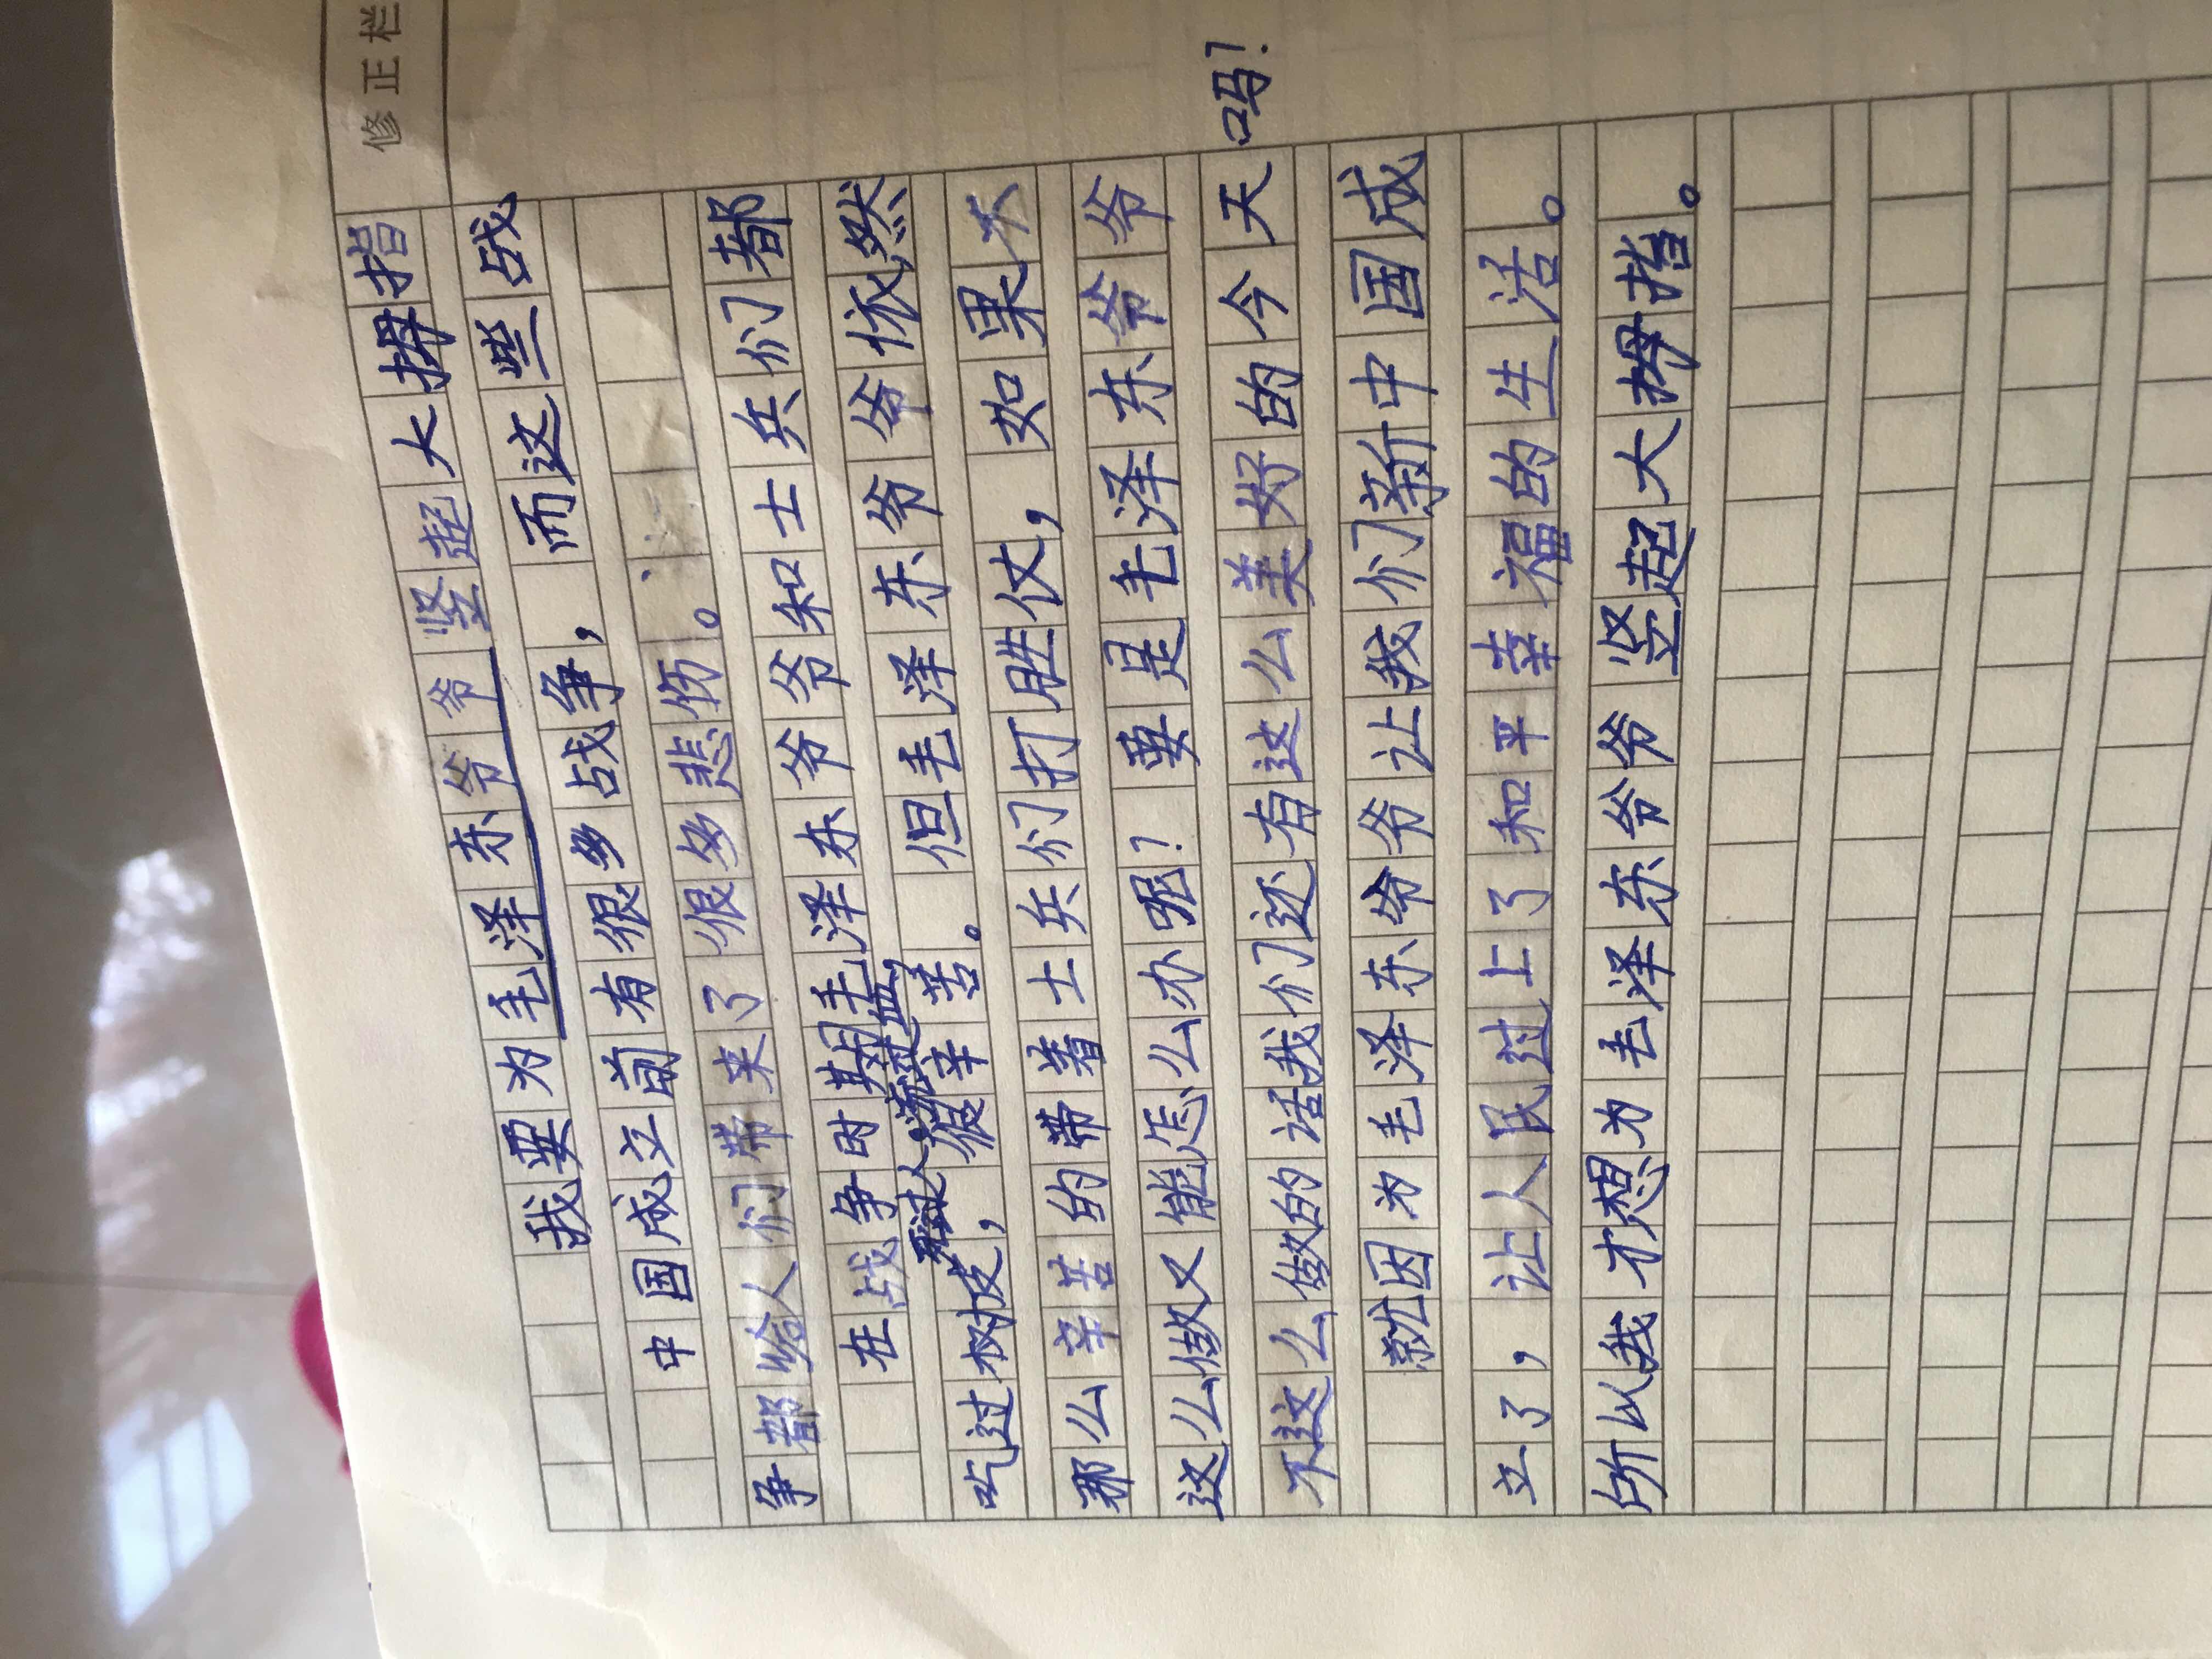 修正栏
我要为毛泽东爷爷竖起大拇指
中国成立前有很多战争，而这些战
争都给人们带来了很多悲伤。
在战争时期毛泽东爷爷和士兵们都
吃过树皮，很辛苦。但毛泽东爷爷依然
那么辛苦的带着士兵们打胜仗，如果不
这么做又能怎么办呢？要是毛泽东爷爷
不这么做的话我们还有这么美好的今天吗？
就因为毛泽东爷爷让我们新中国成
立了，让人民过上了和平幸福的生活。
所以我才想为毛泽东爷爷竖起大拇指。